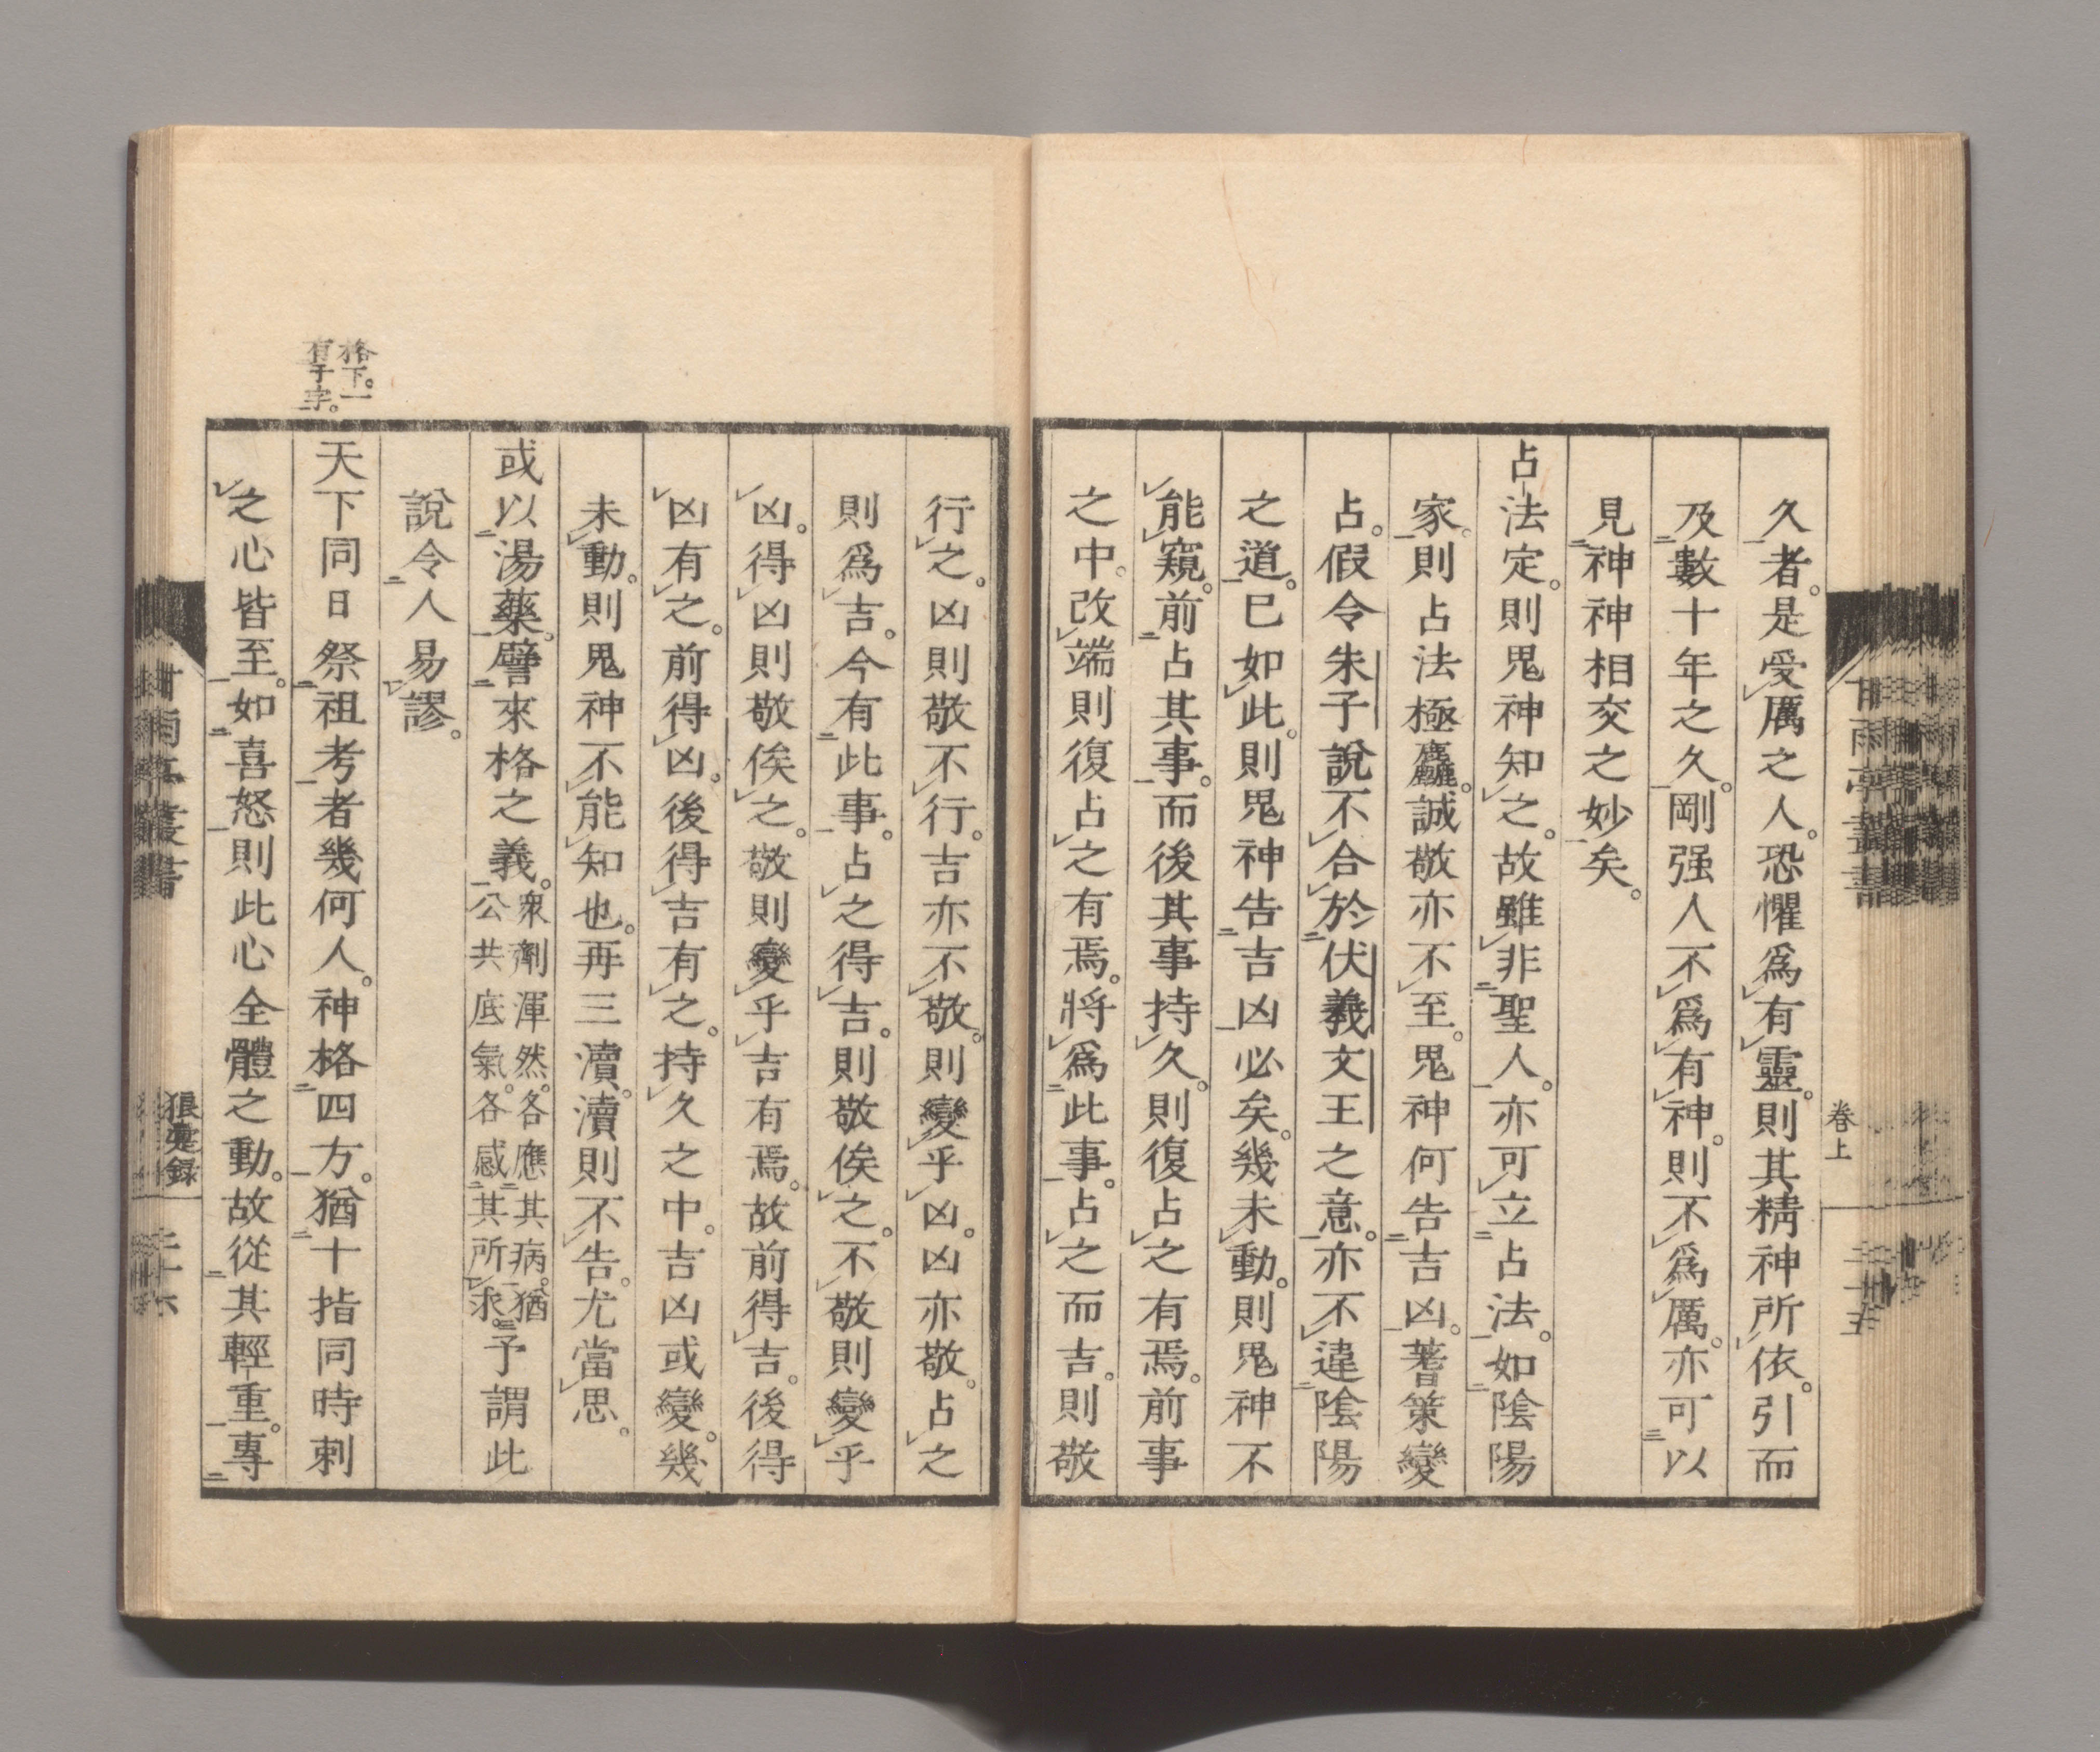 久者。是受厲之人。恐懼爲有靈。則其精神所依。引而
及數十年之久。剛强人不爲有神。則不爲厲。亦可以
見神神相交之妙矣。
占法定。則鬼神知之。故雖非聖人。亦可立占法。如陰陽
家。則占法極麤。誠敬亦不至。鬼神何告吉凶。蓍策變
占。假令朱子說不合於伏羲文王之意。亦不違陰陽
之道。已如此。則鬼神告吉凶必矣。幾未動。則鬼神不
能窺。前占其事。而後其事持久。則復占之有焉。前事
之中。改端則復占之有焉。將爲此事。占之而吉。則敬
甘雨亭叢書
卷上
二十五
行之。凶則敬不行。吉亦不敬。則變乎凶。凶亦敬。占之
則爲吉。今有此事。占之得吉。則敬俟之。不敬則變乎
凶。得凶則敬俟之。敬則變乎吉有焉。故前得吉。後得
凶有之。前得凶。後得吉有之。持久之中。吉凶或變。幾
未動。則鬼神不能知也。再三瀆。瀆則不告。尤當思。
或以湯藥。譬來格之義。衆劑渾然。各應其病。猶
公共底氣。各感其所求。予謂此
說令人易謬。
天下同日祭祖考者幾何人。神格四方。猶十指同時刺
之心皆至。如喜怒則此心全體之動。故從其輕重。專
格下。一
有于字。
甘雨亭叢書
狼疐録
二十六